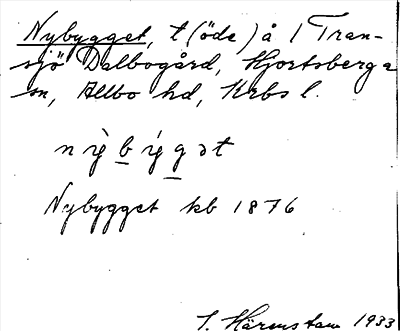 Nybygget, t (öde) å 1 Tran-
sjö Dalbogård, Hjortsberga
sn, Allbo hd, Krbs l.
n y̌ b ý g ə t
Nybygget kb 1876
I. Härenstam 1933